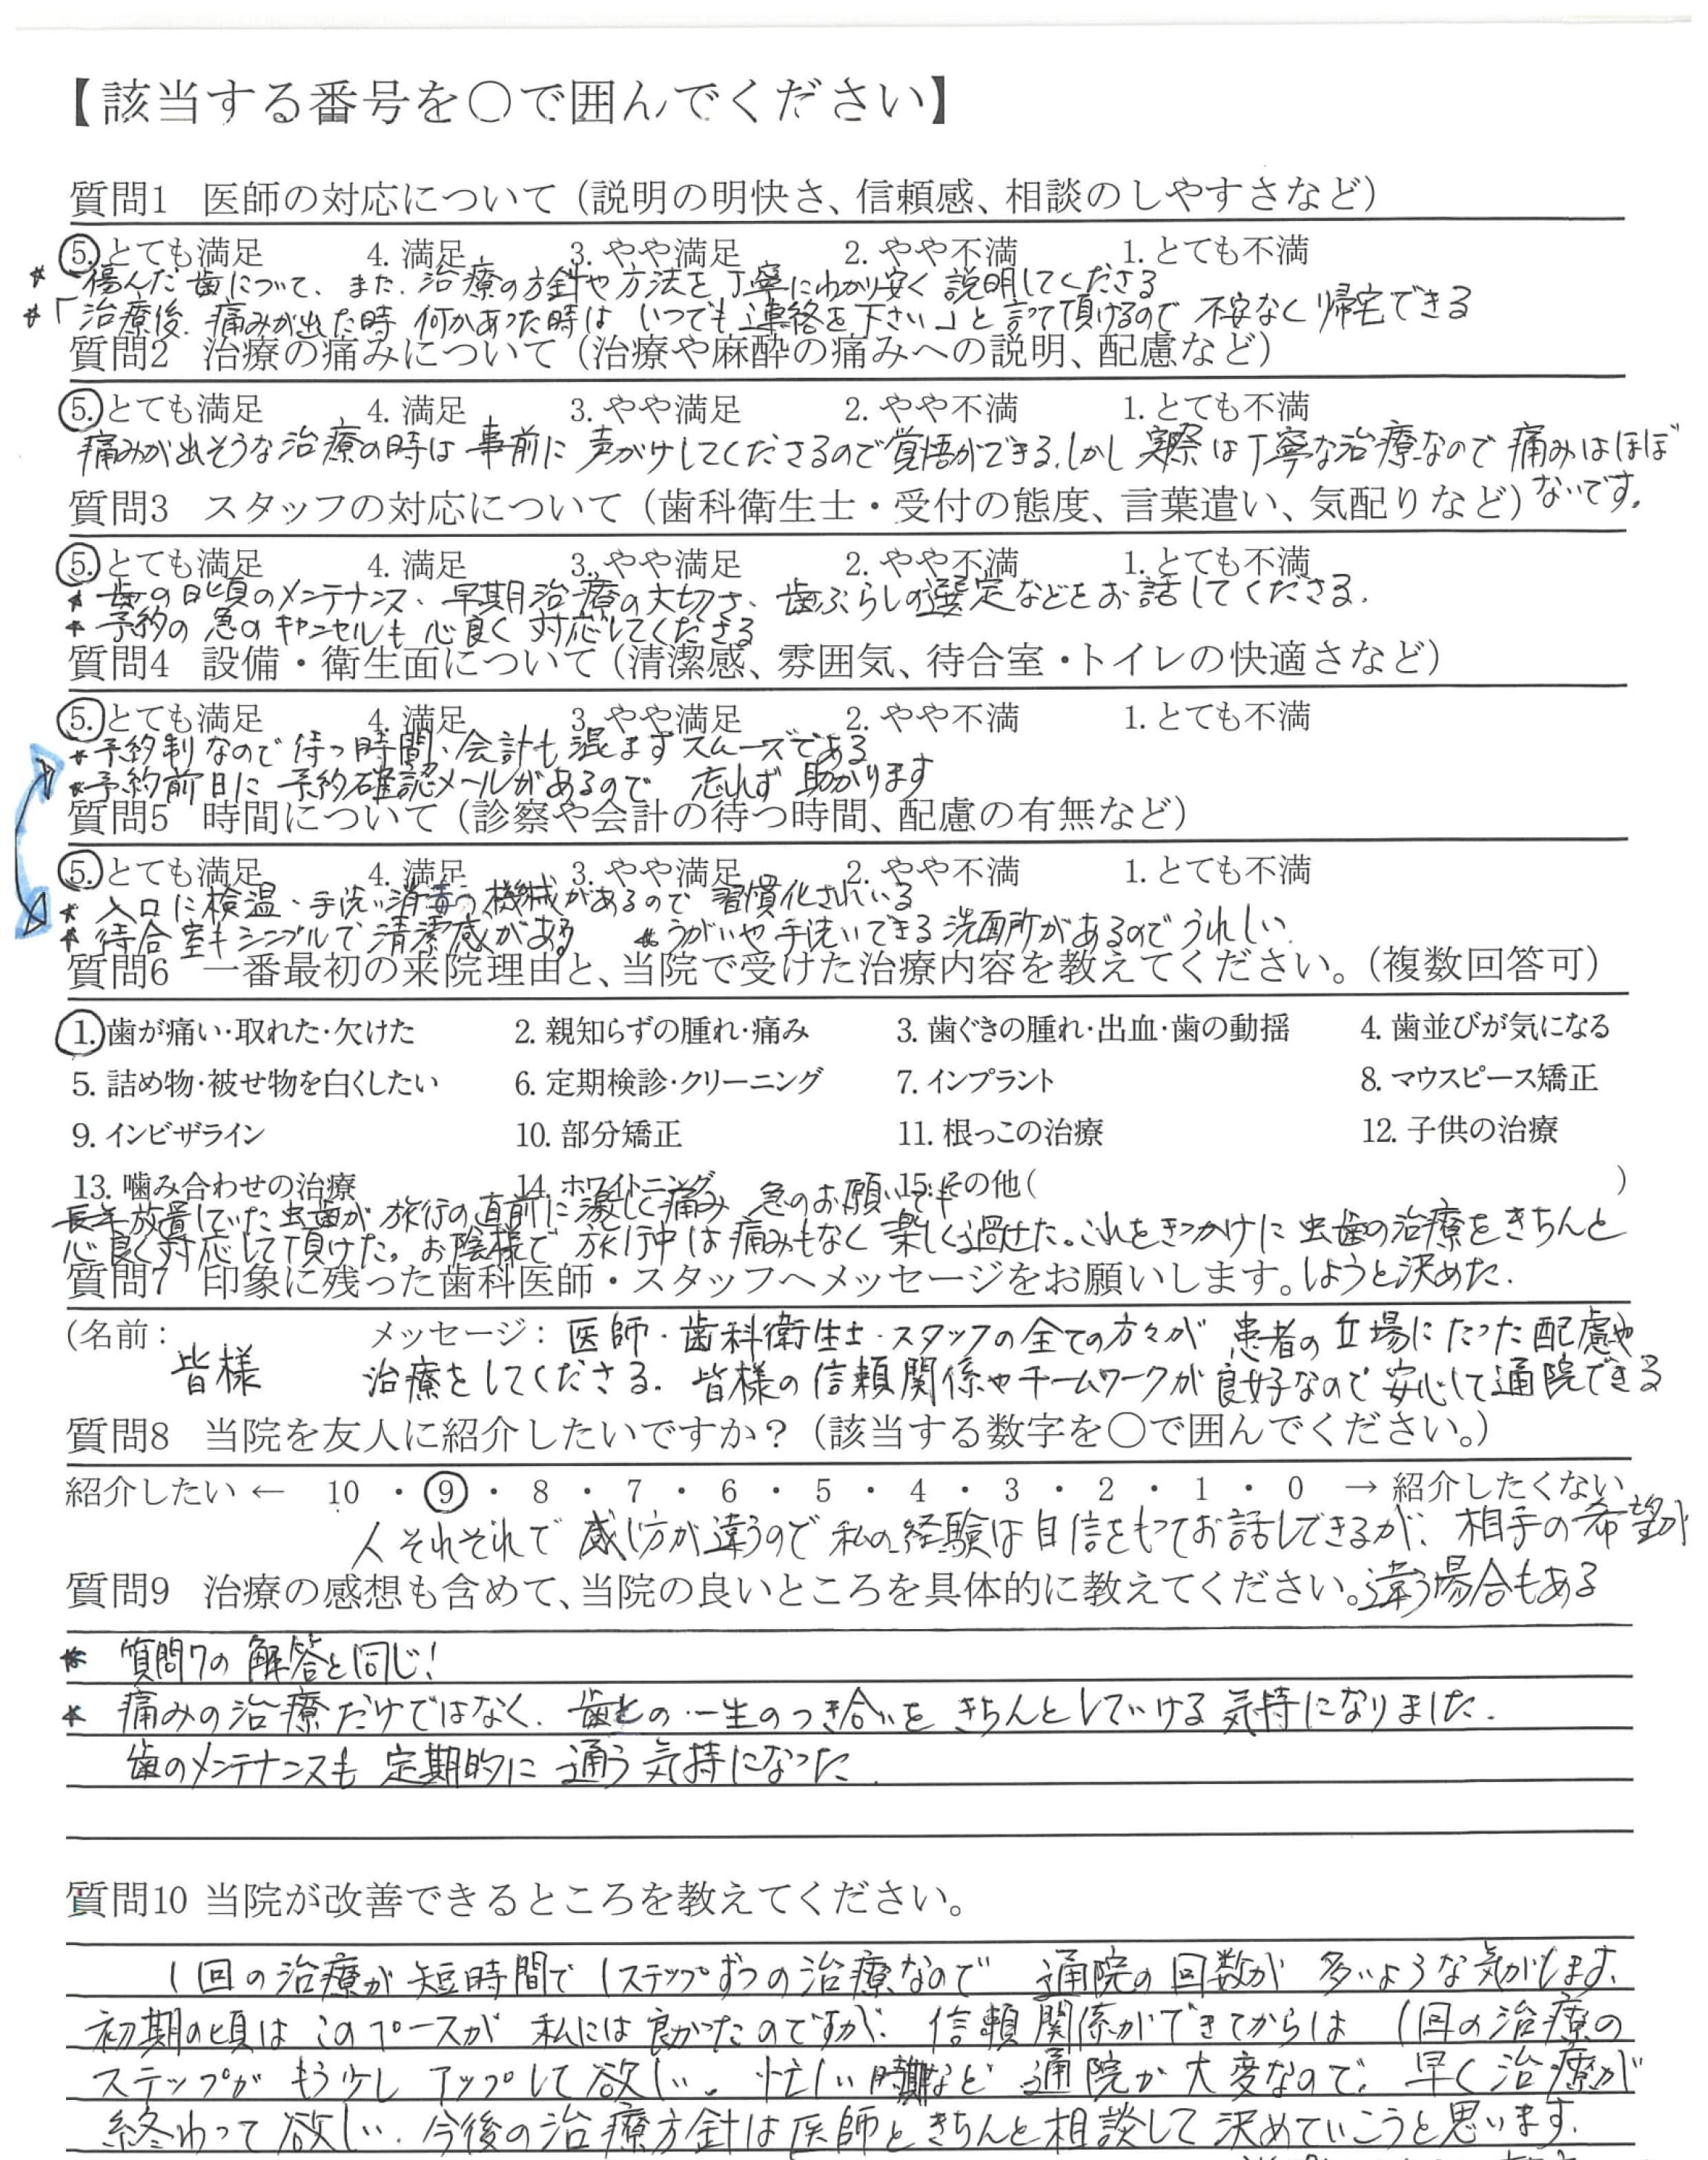 【該当する番号を〇で囲んでください】
質問1 医師の対応について（説明の明快さ、信頼感、相談のしやすさなど）
5. とても満足 4. 満足 3. やや満足 2. やや不満 1. とても不満
* 傷んだ歯について、また、治療の方針や方法を丁寧にわかり安く説明してくださる
* 「治療後、痛みが出た時 何かあった時は いつでも連絡を下さい」と言って頂けるので 不安なく帰宅できる
質問2 治療の痛みについて（治療や麻酔の痛みへの説明、配慮など）
5. とても満足 4. 満足 3. やや満足 2. やや不満 1. とても不満
痛みが出そうな治療の時は 事前に声がけしてくださるので覚悟ができる。しかし実際は丁寧な治療なので 痛みはほぼ
ないです。
質問3 スタッフの対応について（歯科衛生士・受付の態度、言葉遣い、気配りなど）
5. とても満足 4. 満足 3. やや満足 2. やや不満 1. とても不満
* 歯の日頃のメンテナンス、早期治療の大切さ、歯ぶらしの選定などをお話してくださる。
* 予約の急のキャンセルも心良く対応してくださる
質問4 設備・衛生面について（清潔感、雰囲気、待合室・トイレの快適さなど）
5. とても満足 4. 満足 3. やや満足 2. やや不満 1. とても不満
* 予約制なので待つ時間、会計も混まずスムーズである
* 予約前日に予約確認メールがあるので 忘れず助かります
質問5 時間について（診察や会計の待つ時間、配慮の有無など）
5. とても満足 4. 満足 3. やや満足 2. やや不満 1. とても不満
* 入口に検温・手洗い消毒の機械があるので 習慣化されいる
* 待合室もシンプルで清潔感がある * うがいや手洗いできる洗面所があるのでうれしい
質問6 一番最初の来院理由と、当院で受けた治療内容を教えてください。（複数回答可）
1. 歯が痛い・取れた・欠けた 2. 親知らずの腫れ・痛み 3. 歯ぐきの腫れ・出血・歯の動揺 4. 歯並びが気になる
5. 詰め物・被せ物を白くしたい 6. 定期検診・クリーニング 7. インプラント 8. マウスピース矯正
9. インビザライン 10. 部分矯正 11. 根っこの治療 12. 子供の治療
13. 噛み合わせの治療 14. ホワイトニング 15. その他( )
長年放置していた虫歯が旅行の直前に激しく痛み 急のお願いでも
心良く対応して頂けた。お陰様で 旅行中は痛みもなく楽しく過せた。これをきっかけに虫歯の治療をきちんと
しようと決めた。
質問7 印象に残った歯科医師・スタッフへメッセージをお願いします。
(名前： 皆様 メッセージ：医師・歯科衛生士・スタッフの全ての方々が 患者の立場にたった配慮や
治療をしてくださる。皆様の信頼関係やチームワークが良好なので安心して通院できる
質問8 当院を友人に紹介したいですか？（該当する数字を〇で囲んでください。）
紹介したい ← 10 ・ 9 ・ 8 ・ 7 ・ 6 ・ 5 ・ 4 ・ 3 ・ 2 ・ 1 ・ 0 → 紹介したくない
人それぞれで 感じ方が違うので 私の経験は自信をもってお話しできるが、相手の希望が
違う場合もある
質問9 治療の感想も含めて、当院の良いところを具体的に教えてください。
* 質問7の解答と同じ！
* 痛みの治療だけではなく、歯との一生のつき合いをきちんとしていける気持になりました。
歯のメンテナンスも定期的に通う気持になった。
質問10 当院が改善できるところを教えてください。
1回の治療が短時間で1ステップずつの治療なので 通院の回数が多いような気がします。
初期の頃はこのペースが私には良かったのですが、信頼関係ができてからは 1回の治療の
ステップがもう少しアップして欲しい。忙しい時期など通院が大変なので、早く治療が
終わって欲しい。今後の治療方針は医師ときちんと相談して決めていこうと思います。